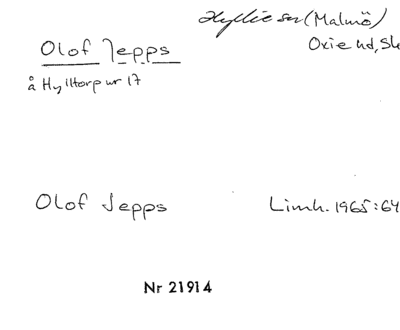 Hyllie sn (Malmö)
Oxie hd, Sk
Olof Jepps
å Hylltorp nr 17
Olof Jepps Limh. 1965:64
Nr 21914